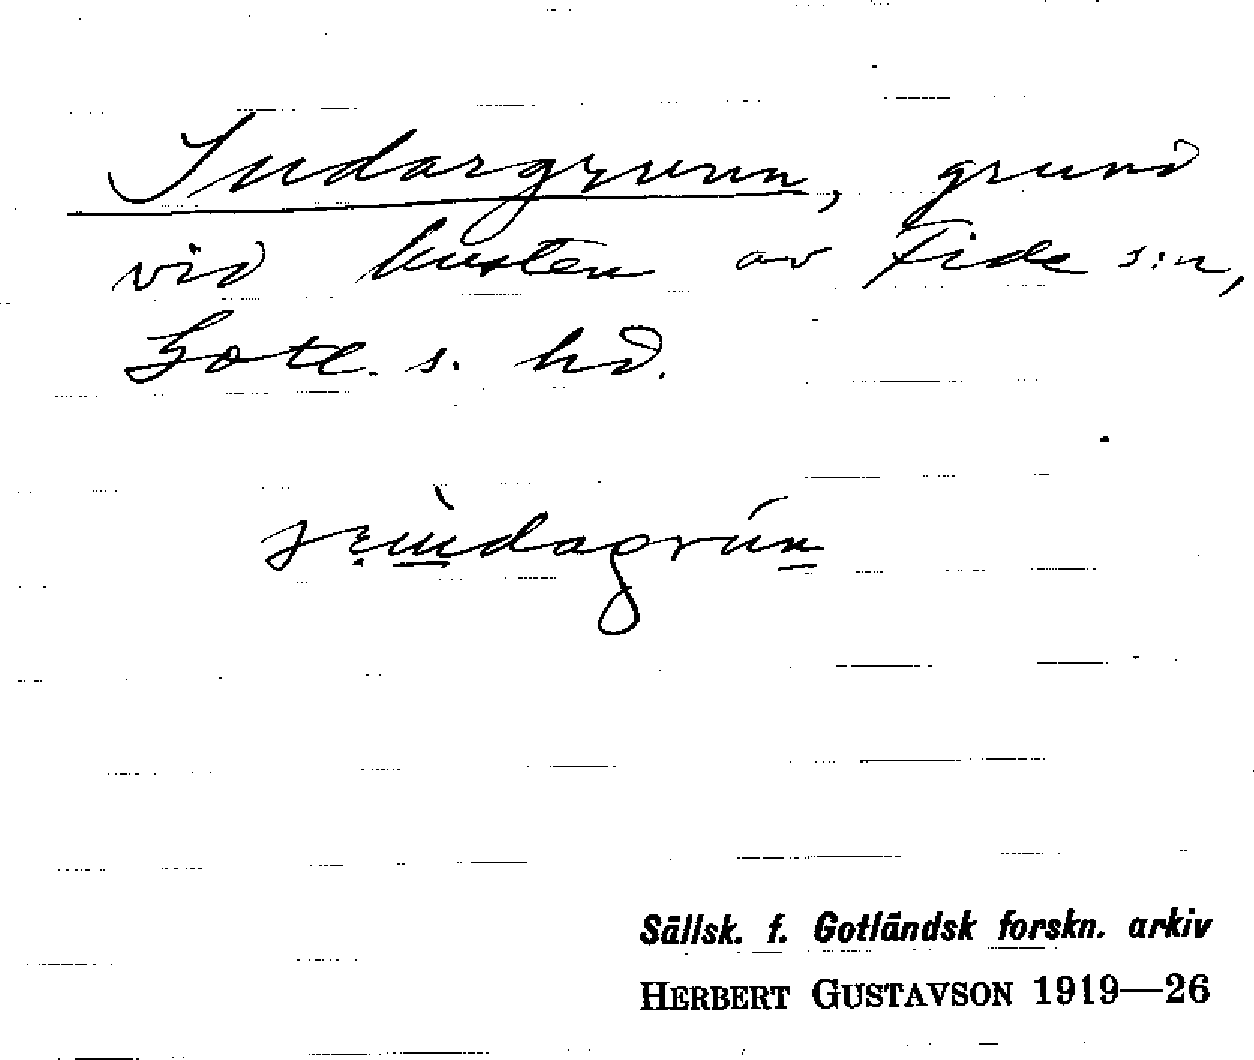 Sudargrunn, grund
vid kusten av Fide s:n,
Gotl. s. hd.
Sällsk. f. Gotländsk forskn. arkiv
HERBERT GUSTAVSON 1919—26